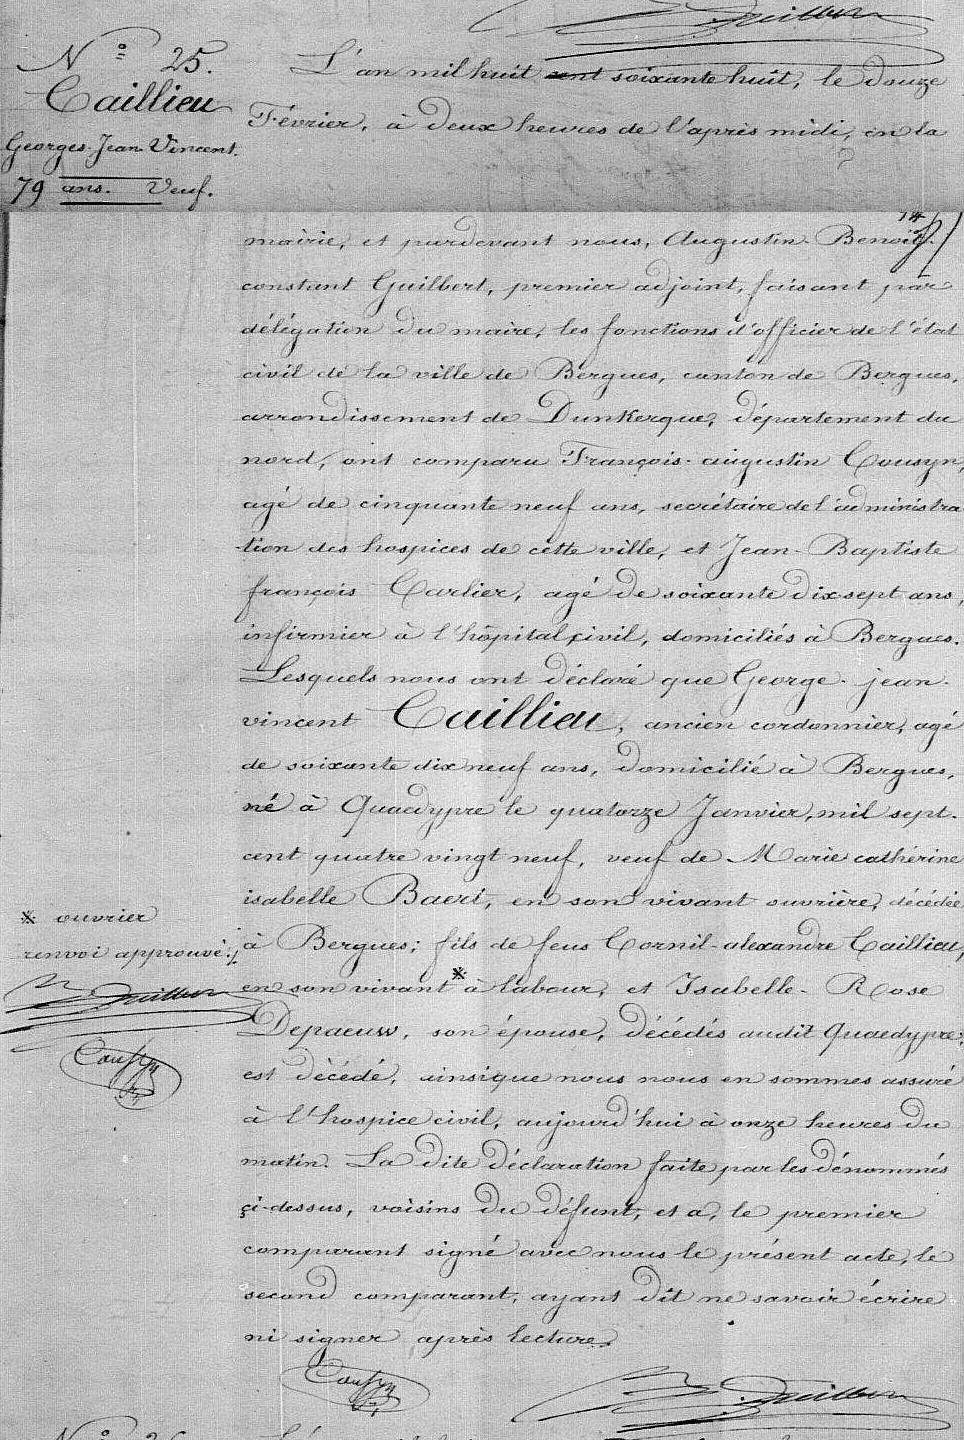 Guilbert
N° 25.
Caillieu
Georges-Jean Vincent.
79 ans. Veuf.
L'an mil huit cent soixante huit, le douze
Février, à deux heures de l'après midi, en la
14
mairie, et pardevant nous, Augustin-Benoit-
constant Guilbert, premier adjoint, faisant par
délégation du maire, les fonctions d'officier de l'état
civil de la ville de Bergues, canton de Bergues,
arrondissement de Dunkerque, département du
nord, ont comparu François-augustin Cousyn,
agé de cinquante neuf ans, secrétaire de l'administra
-tion des hospices de cette ville, et Jean-Baptiste
françois Carlier, agé de soixante dix sept ans,
infirmier à l'hôpital civil, domiciliés à Bergues.
Lesquels nous ont déclaré que George-jean-
vincent Caillieu, ancien cordonnier, agé
de soixante dix neuf ans, domicilié à Bergues,
né à Quaedypre le quatorze Janvier, mil sept-
cent quatre vingt neuf, veuf de Marie cathérine
isabelle Baert, en son vivant ouvrière, décédée
à Bergues; fils de feus Cornil-alexandre Caillieu,
en son vivant * à labour, et Isabelle-Rose
Depaeuw, son épouse, décédés audit Quaedypre;
est dècédé, ainsi que nous nous en sommes assuré
à l'hospice civil, aujourd'hui à onze heures du
matin. La dite déclaration faite par les dénommés
çi-dessus, voisins du défunt, et a, le premier
comparant signé avec nous le présent acte, le
second comparant, ayant dit ne savoir écrire
ni signer après lecture.
* ouvrier
renvoi approuvé.
Guilbert
Cousyn
Cousyn
Guilbert